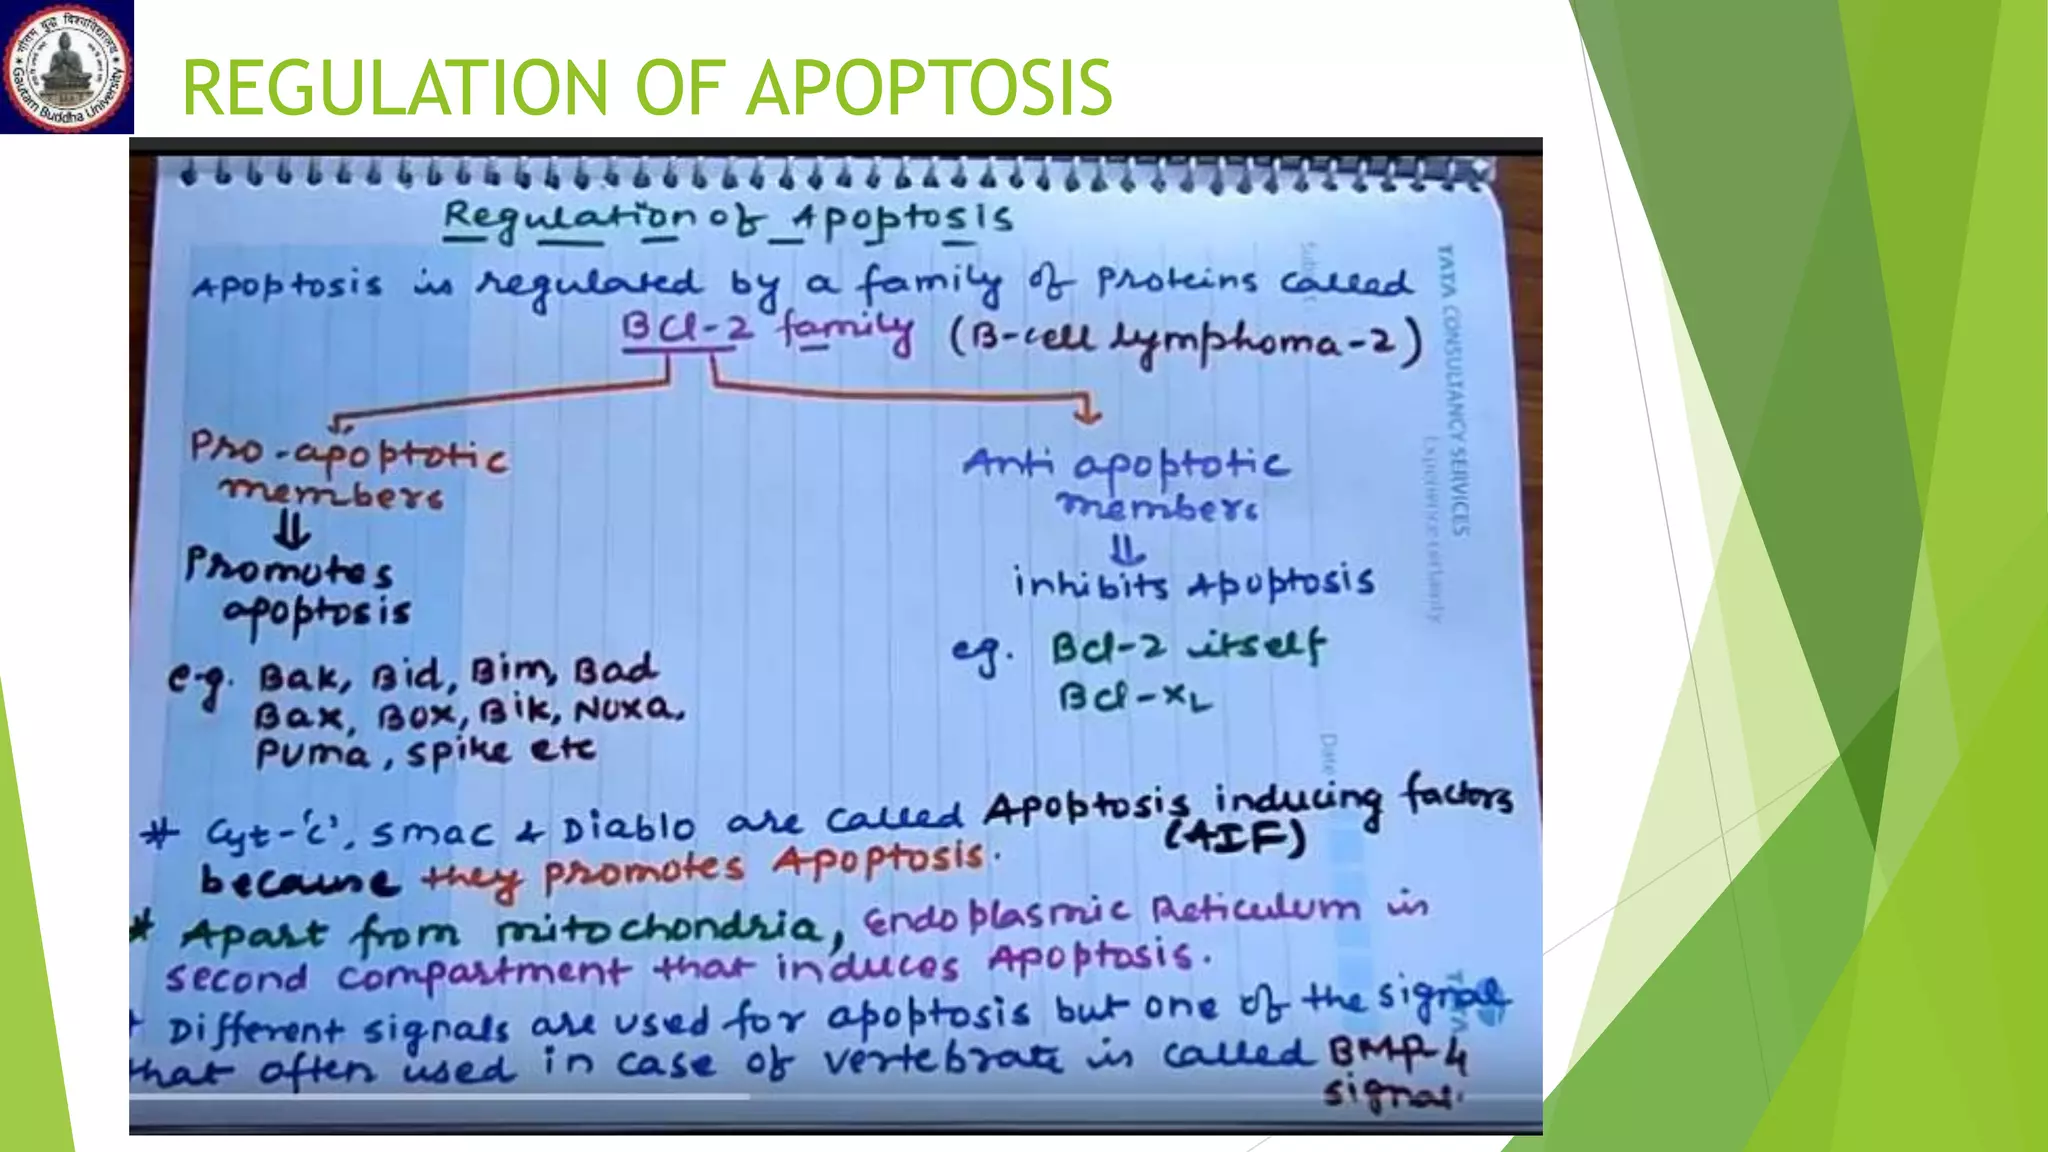 गौतम बुद्ध विश्वविद्यालय
Gautam Buddha University
REGULATION OF APOPTOSIS
Regulation of Apoptosis
Apoptosis is regulated by a family of proteins called
Bcl-2 family (B-cell lymphoma-2)
Pro-apoptotic
members
⇓
Promotes
apoptosis
e.g. Bak, Bid, Bim, Bad
Bax, Box, Bik, Noxa,
Puma, spike etc
Anti apoptotic
members
⇓
inhibits Apoptosis
eg. Bcl-2 itself
Bcl-xL
# Cyt-'c', smac & Diablo are called Apoptosis inducing factors
(AIF)
because they promotes Apoptosis.
* Apart from mitochondria, Endoplasmic Reticulum is
second compartment that induces Apoptosis.
Different signals are used for apoptosis but one of the signal
that often used in case of vertebrate is called BMP-4
signal.
TATA CONSULTANCY SERVICES
Experience certainty
Date
TATA